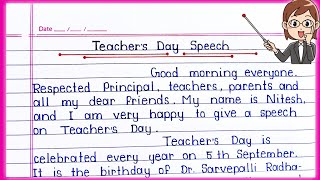 Date __/__/__
Teacher's Day Speech
Good morning everyone.
Respected Principal, teachers, parents and
all my dear Friends. My name is Nitesh,
and I am very happy to give a speech
on Teacher's Day.
Teacher's Day is
celebrated every year on 5th September.
It is the birthday of Dr. Sarvepalli Radha-